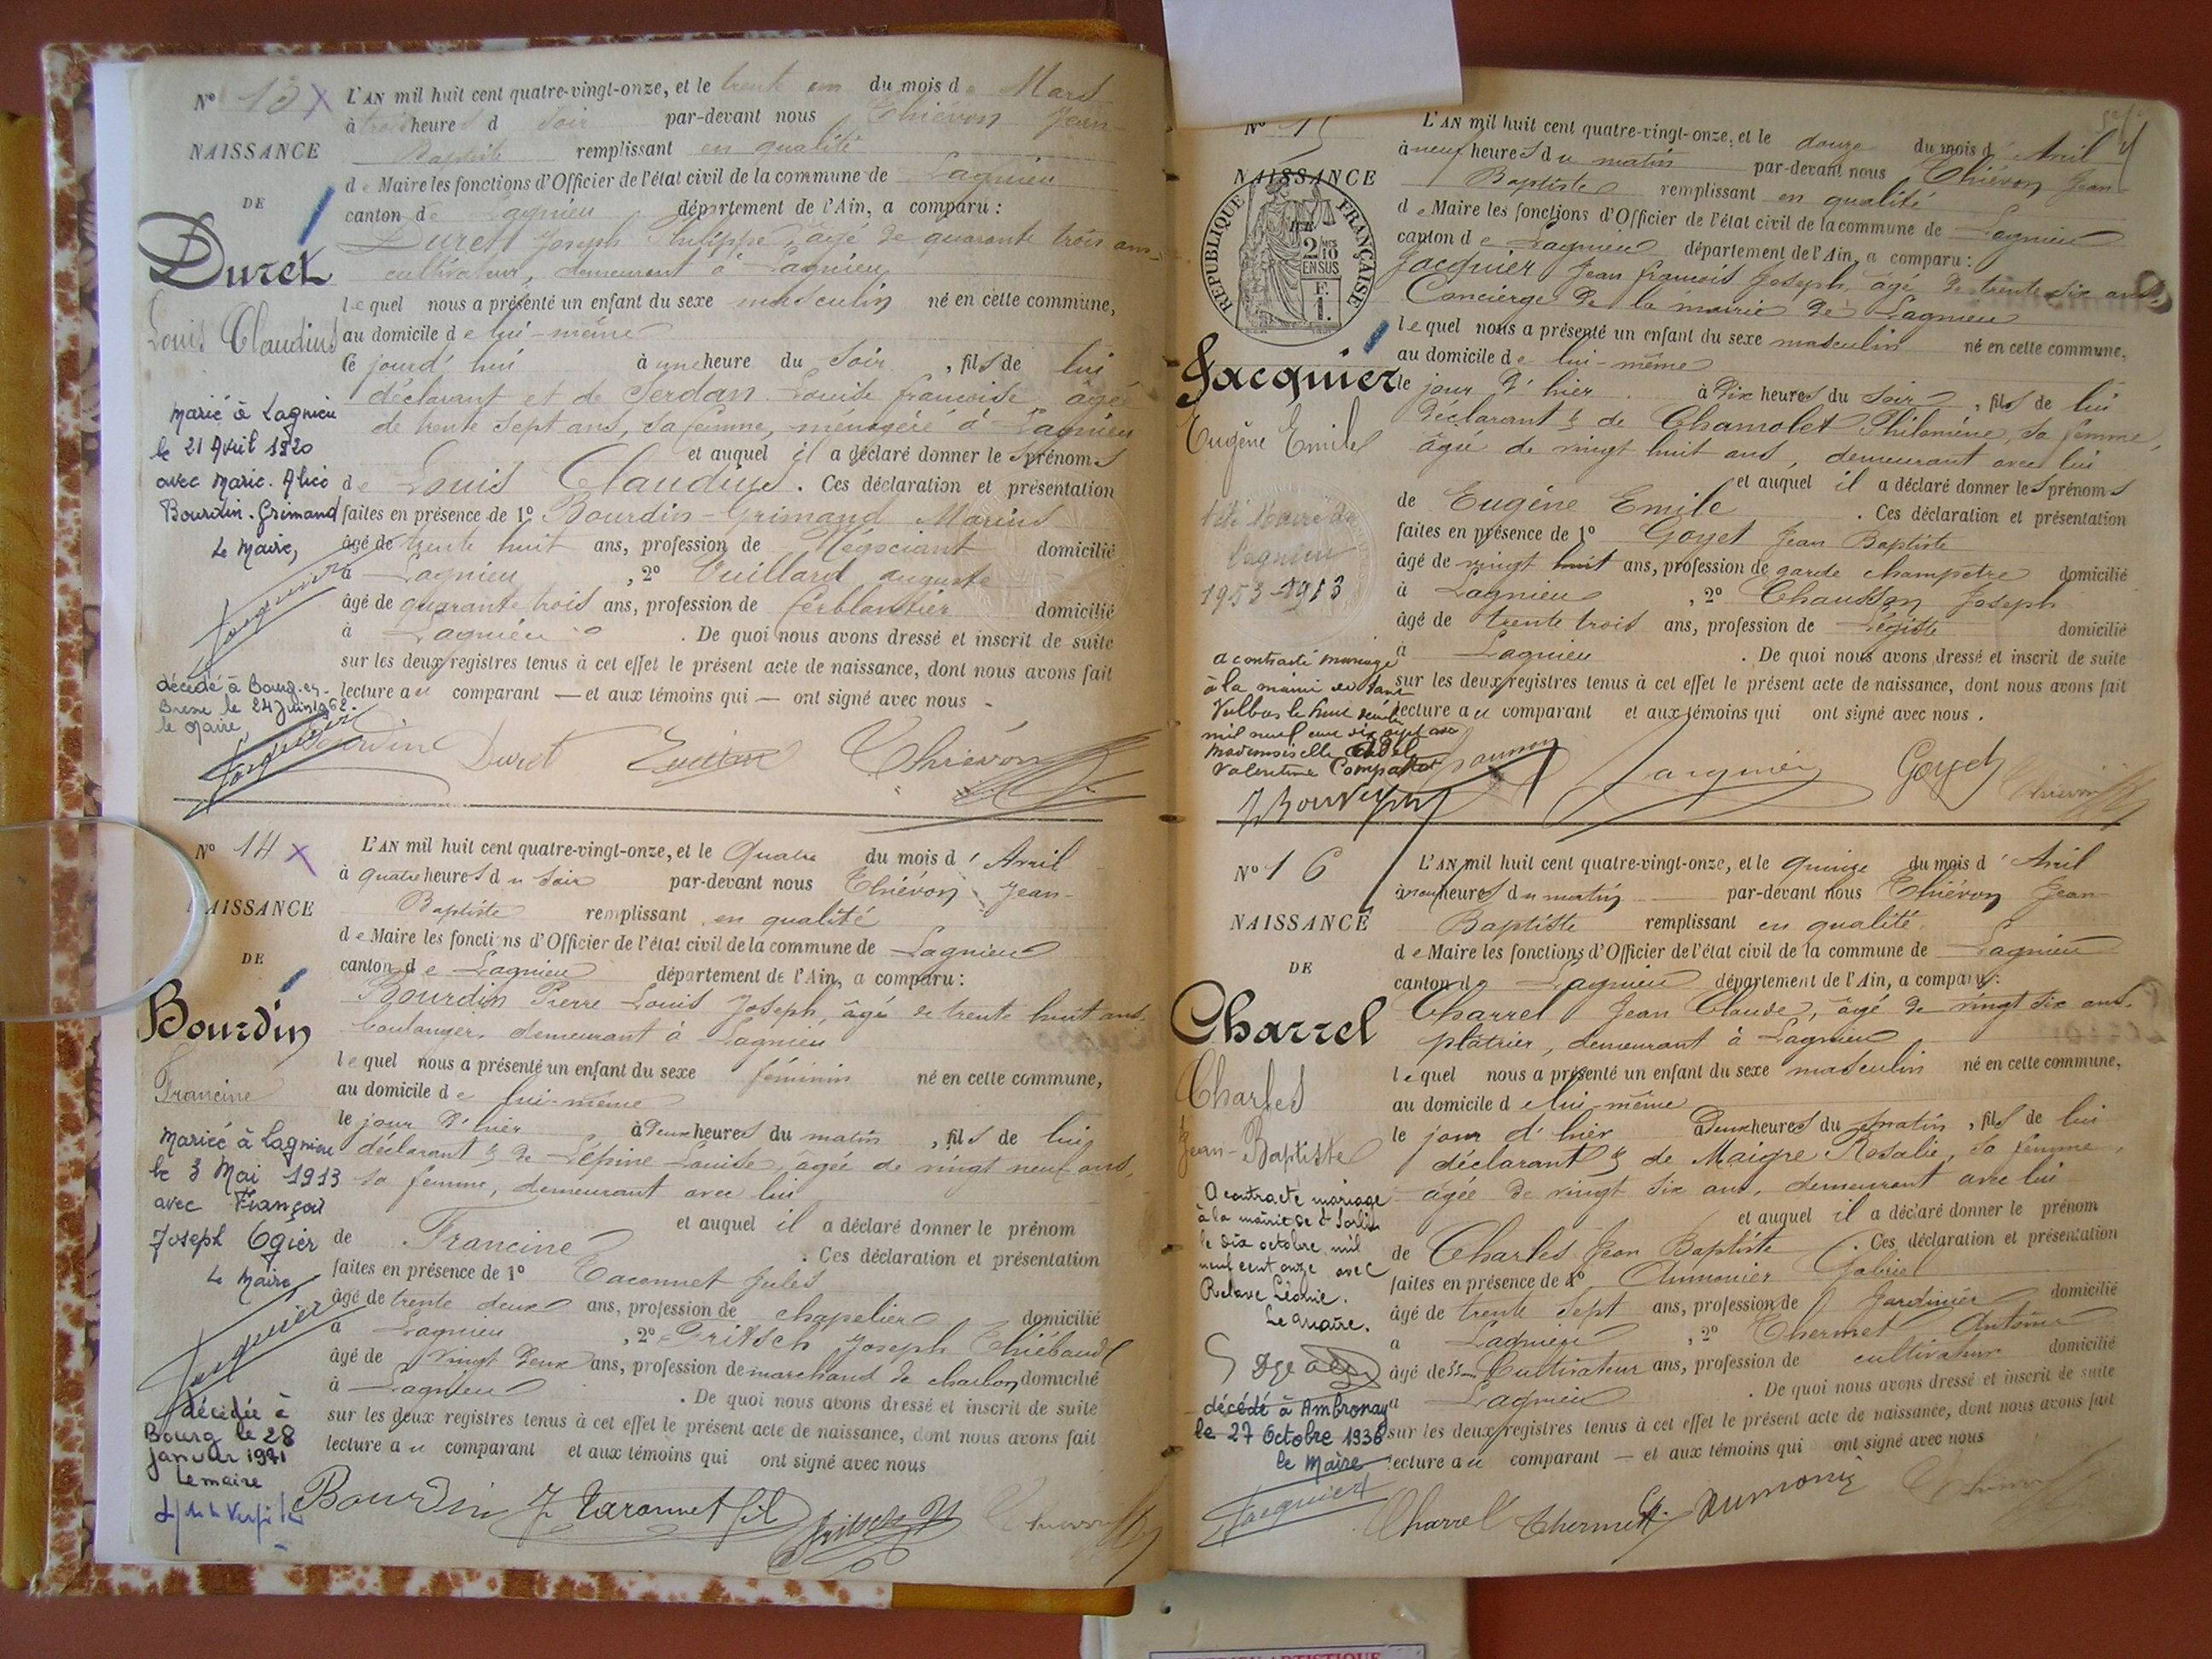 N° 13 X
NAISSANCE
DE
Duret
Louis Claudius
L'AN mil huit cent quatre-vingt-onze, et le trente un du mois de Mars
à trois heures d soir par-devant nous Thiévon Jean-
Baptiste remplissant en qualité
de Maire les fonctions d'Officier de l'état civil de la commune de Lagnieu
canton de Lagnieu département de l'Ain, a comparu :
Duret Joseph Philippe, âgé de quarante trois ans
cultivateur, demeurant à Lagnieu
lequel nous a présenté un enfant du sexe masculin né en cette commune,
au domicile de lui-même
Ce jourd'hui à une heure du soir, fils de lui
déclarant et de Serdan Louise françoise âgée
de trente sept ans, sa femme, ménagère à Lagnieu
et auquel il a déclaré donner les prénoms
de Louis Claudius. Ces déclaration et présentation
faites en présence de 1° Bourdin-Grimaud Marius
âgé de trente huit ans, profession de Négociant domicilié
à Lagnieu, 2° Vuillard auguste
âgé de quarante trois ans, profession de ferblantier domicilié
à Lagnieu. De quoi nous avons dressé et inscrit de suite
sur les deux registres tenus à cet effet le présent acte de naissance, dont nous avons fait
lecture au comparant — et aux témoins qui — ont signé avec nous -
Marié à Lagnieu
le 21 Avril 1920
avec Marie. Alice
Bourdin. Grimaud
Le Maire,
Jacquier
décédé à Bourg-en-
Bresse le 24 Juin 1962.
le Maire
Jacquier
Bourdin Duret Thiévon
N° 14 X
NAISSANCE
DE
Bourdin
Francine
L'AN mil huit cent quatre-vingt-onze, et le Quatre du mois d'Avril
à quatre heures du soir par-devant nous Thiévon Jean-
Baptiste remplissant en qualité
de Maire les fonctions d'Officier de l'état civil de la commune de Lagnieu
canton de Lagnieu département de l'Ain, a comparu :
Bourdin Pierre Louis Joseph, âgé de trente huit ans,
boulanger, demeurant à Lagnieu
lequel nous a présenté un enfant du sexe féminin né en cette commune,
au domicile de lui-même
le jour d'hier à deux heures du matin, fils de lui
déclarant & de Lépine Louise, âgée de vingt neuf ans,
sa femme, demeurant avec lui
et auquel il a déclaré donner le prénom
de Francine. Ces déclaration et présentation
faites en présence de 1° Taconnet Jules
âgé de trente deux ans, profession de chapelier domicilié
à Lagnieu, 2° Fritsch Joseph Thiébaud
âgé de vingt deux ans, profession de marchand de charbon domicilié
à Lagnieu. De quoi nous avons dressé et inscrit de suite
sur les deux registres tenus à cet effet le présent acte de naissance, dont nous avons fait
lecture au comparant et aux témoins qui ont signé avec nous
Mariée à Lagnieu
le 3 Mai 1913
avec François
Joseph Ogier
Le Maire
Jacquier
décédée à
Bourg le 28
janvier 1971
Le maire
Bourdin J Taconnet fils Fritsch
N° 15
NAISSANCE
RÉPUBLIQUE FRANÇAISE
2/10
EN SUS
F.
1.
Jacquier
Eugène Emile
L'AN mil huit cent quatre-vingt-onze, et le douze du mois d'Avril
à neuf heures du matin par-devant nous Thiévon Jean-
Baptiste remplissant en qualité
de Maire les fonctions d'Officier de l'état civil de la commune de Lagnieu
canton de Lagnieu département de l'Ain, a comparu :
Jacquier Jean françois Joseph, âgé de trente six ans
Concierge de la mairie de Lagnieu
lequel nous a présenté un enfant du sexe masculin né en cette commune,
au domicile de lui-même
le jour d'hier à dix heures du soir, fils de lui
déclarant & de Chamolet Philomène, sa femme,
âgée de vingt huit ans, demeurant avec lui
et auquel il a déclaré donner les prénoms
de Eugène Emile. Ces déclaration et présentation
faites en présence de 1° Goyet Jean Baptiste
âgé de vingt huit ans, profession de garde champetre domicilié
à Lagnieu, 2° Chausson Joseph
âgé de trente trois ans, profession de Légiste domicilié
à Lagnieu. De quoi nous avons dressé et inscrit de suite
sur les deux registres tenus à cet effet le présent acte de naissance, dont nous avons fait
lecture au comparant et aux témoins qui ont signé avec nous.
Maire de
Lagnieu
1953
a contracté mariage
à la mairie de Saint
Vulbas le
mil neuf cent dix sept avec
Mademoiselle
Valentine
Jacquier Goyet Thiévon
N° 16
NAISSANCE
DE
Charrel
Charles
Jean-Baptiste
L'AN mil huit cent quatre-vingt-onze, et le quinze du mois d'Avril
à neuf heures du matin par-devant nous Thiévon Jean-
Baptiste remplissant en qualité
de Maire les fonctions d'Officier de l'état civil de la commune de Lagnieu
canton de Lagnieu département de l'Ain, a comparu :
Charrel Jean Claude, âgé de vingt six ans,
plâtrier, demeurant à Lagnieu
lequel nous a présenté un enfant du sexe masculin né en cette commune,
au domicile de lui-même
le jour d'hier à deux heures du matin, fils de lui
déclarant & de Maigre Rosalie, sa femme,
âgée de vingt six ans, demeurant avec lui
et auquel il a déclaré donner le prénom
de Charles Jean Baptiste. Ces déclaration et présentation
faites en présence de 1° Aumonier Gabriel
âgé de trente sept ans, profession de Jardinier domicilié
à Lagnieu, 2° Thermet Antoine
âgé de Cultivateur ans, profession de cultivateur domicilié
à Lagnieu. De quoi nous avons dressé et inscrit de suite
sur les deux registres tenus à cet effet le présent acte de naissance, dont nous avons fait
lecture au comparant — et aux témoins qui ont signé avec nous
A contracté mariage
à la mairie de St Sorlin
le dix octobre mil
neuf cent onze avec
Relave Léonie.
Le Maire.
décédé à Ambronay
le 27 Octobre 1936
le Maire
Jacquier
Charrel Thermet Aumonier